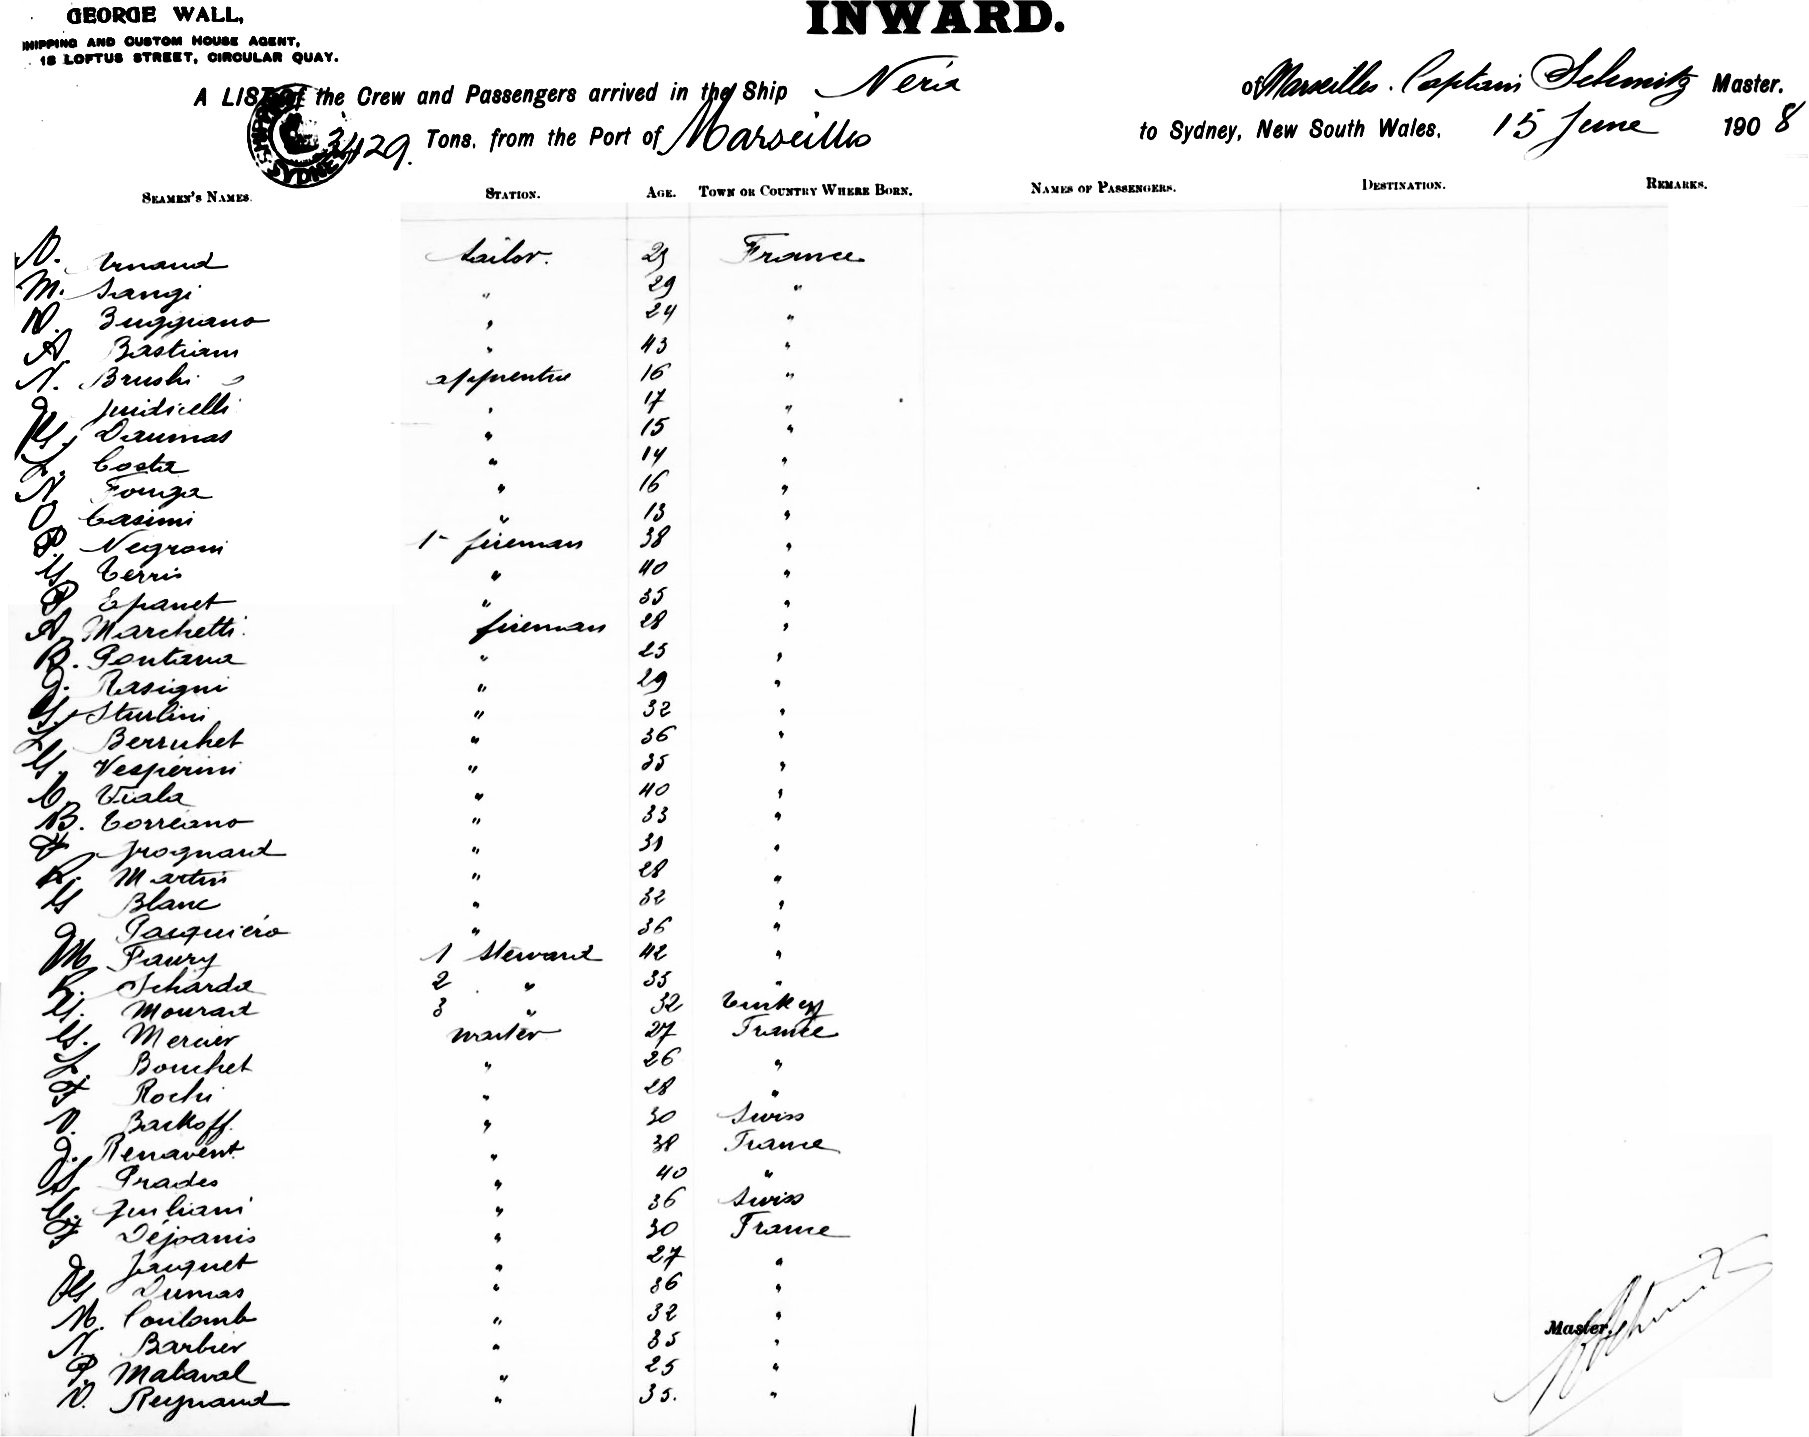 GEORGE WALL,
SHIPPING AND CUSTOM HOUSE AGENT,
18 LOFTUS STREET, CIRCULAR QUAY.
INWARD.
A LIST of the Crew and Passengers arrived in the Ship Neria of Marseilles. Captain Schmitz Master.
3429. Tons, from the Port of Marseilles to Sydney, New South Wales, 15 June 1908
SEAMEN'S NAMES. STATION. AGE. TOWN OR COUNTRY WHERE BORN. NAMES OF PASSENGERS. DESTINATION. REMARKS.
Arnaud sailor. 23 France
M. Sangi " 29 "
Buggiano " 24 "
A. Bastiani " 43 "
N. Brushi apprentice 16 "
J. Juidicelli " 17 "
Daumas " 15 "
L. Costa " 14 "
N. Fouga " 16 "
O. Casimi " 13 "
P. Negroni 1- fireman 38 "
G. Terris " 40 "
P. Epanet " 35 "
A. Marchetti fireman 28 "
B. Pontana " 25 "
J. Rasigni " 29 "
Sturlini " 32 "
L. Berruhet " 36 "
G. Vesperini " 35 "
C. Viala " 40 "
B. Torreano " 33 "
Jrognard " 31 "
R. Martin " 28 "
G Blanc " 32 "
J Pasquiero " 36 "
M Faury 1 Steward 42 "
R. Scharda 2 " 35 "
G. Mourad 3 " 32 Turkey
G. Mercier waiter 27 France
L. Bouchet " 26 "
F Rochi " 28 "
V. Backoff. " 30 Swiss
J. Renavent " 38 France
Prades " 40 "
C. Juliani " 36 Swiss
F Déjoanis " 30 France
J Jauquet " 27 "
Dumas " 36 "
M. Coulomb " 32 "
N. Barbier " 35 "
P. Malaval " 25 "
V. Reynaud " 35. "
Master, Schmitz